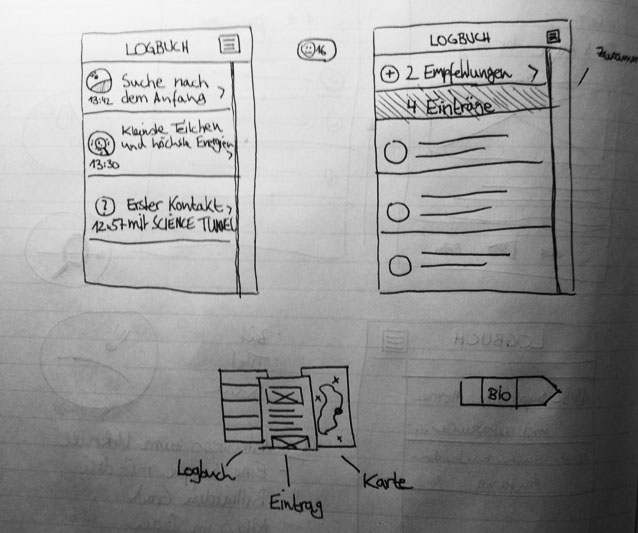 LOGBUCH
Suche nach
13:42 dem Anfang
Kleinste Teilchen
und höchste Energien
13:30
Erster Kontakt
12:57 mit SCIENCE TUNNEL
16
LOGBUCH
2 Empfehlungen
4 Einträge
BIO
Logbuch
Eintrag
Karte